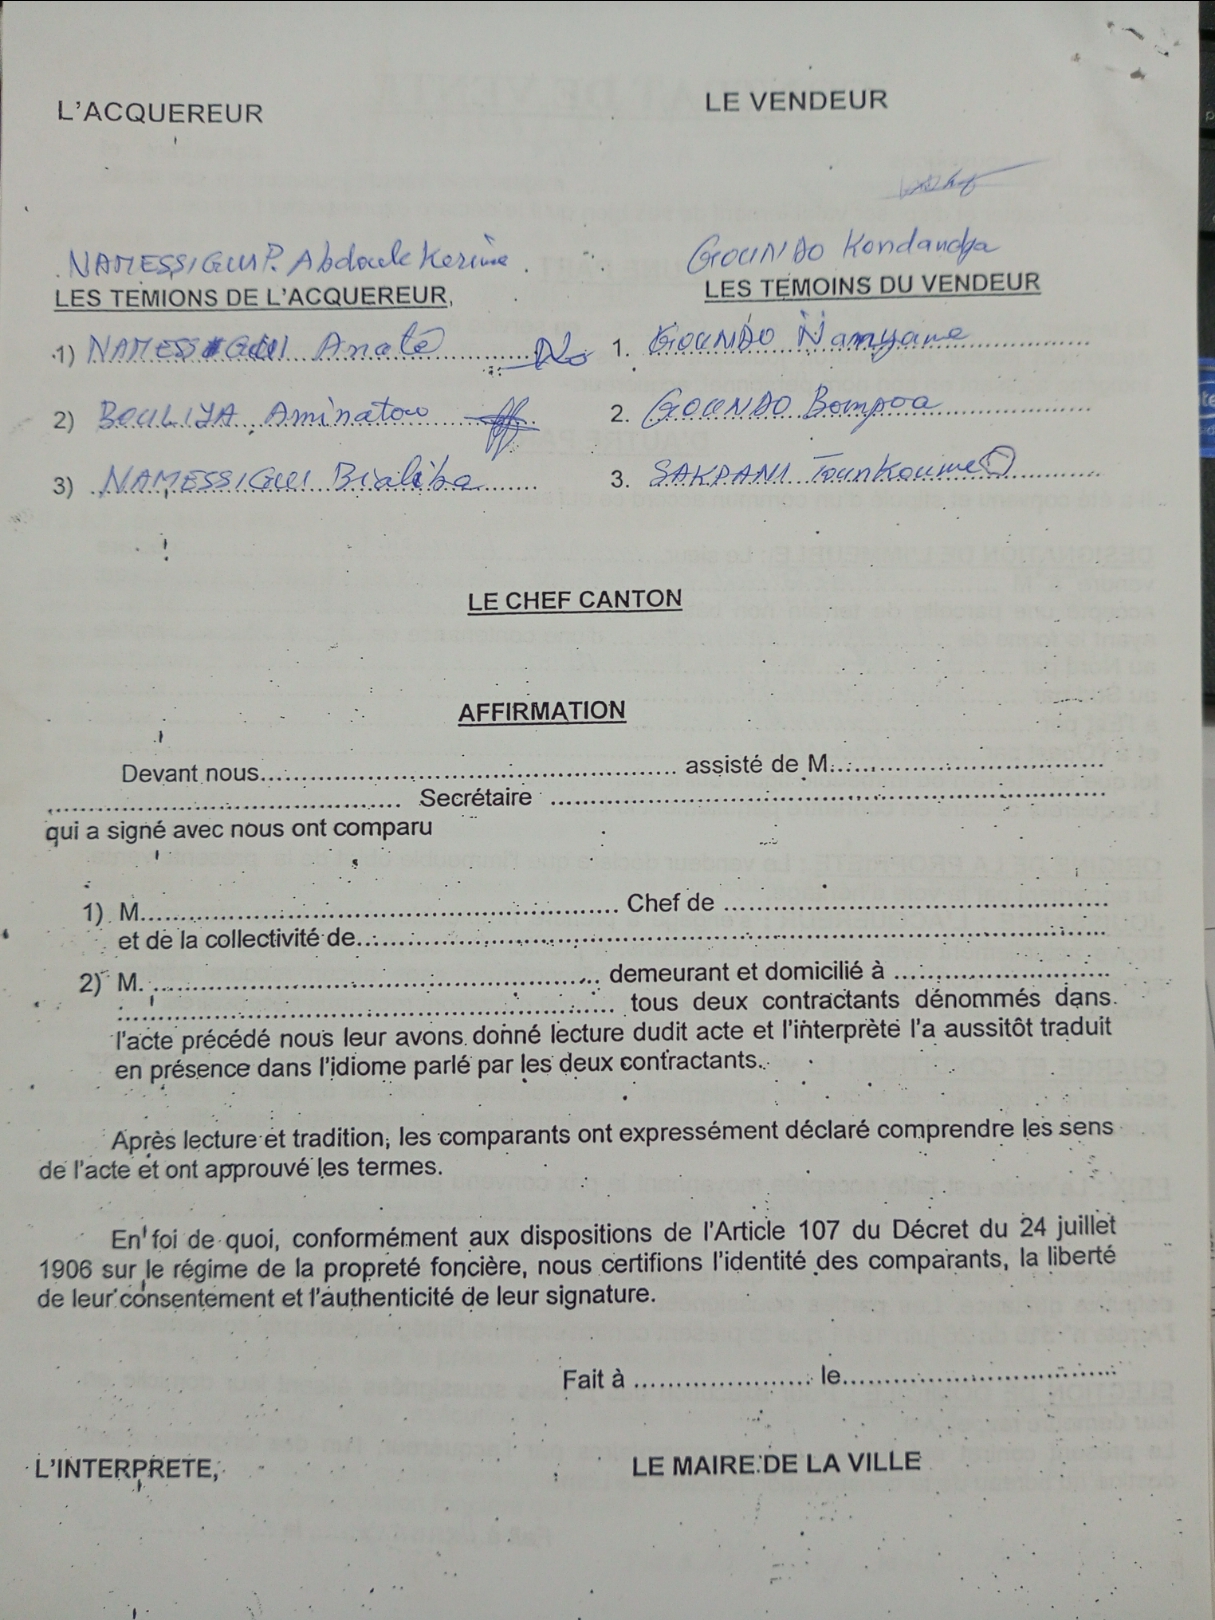 L'ACQUEREUR
LE VENDEUR
NAMESSIGUI P. Abdoule Kerime.
GOUNDO Kondandja
LES TEMIONS DE L'ACQUEREUR,
LES TEMOINS DU VENDEUR
1) NAMESSIGUI Anaté
1. GOUNDO Namyame
2) BOULIJA Aminatou
2. GOUNDO Bompoa
3) NAMESSIGUI Bialiba
3. SAKPANI Tounkoume
LE CHEF CANTON
AFFIRMATION
Devant nous.................................................. assisté de M..................................
.......................................... Secrétaire ..................................................................
qui a signé avec nous ont comparu
1) M.......................................................... Chef de ..............................................
et de la collectivité de..........................................................................................
2) M. ...................................................... demeurant et domicilié à .........................
............................................................ tous deux contractants dénommés dans
l'acte précédé nous leur avons donné lecture dudit acte et l'interprète l'a aussitôt traduit
en présence dans l'idiome parlé par les deux contractants.
Après lecture et tradition, les comparants ont expressément déclaré comprendre les sens
de l'acte et ont approuvé les termes.
En foi de quoi, conformément aux dispositions de l'Article 107 du Décret du 24 juillet
1906 sur le régime de la propreté foncière, nous certifions l'identité des comparants, la liberté
de leur consentement et l'authenticité de leur signature.
Fait à ..................... le.................................
L'INTERPRETE,
LE MAIRE DE LA VILLE